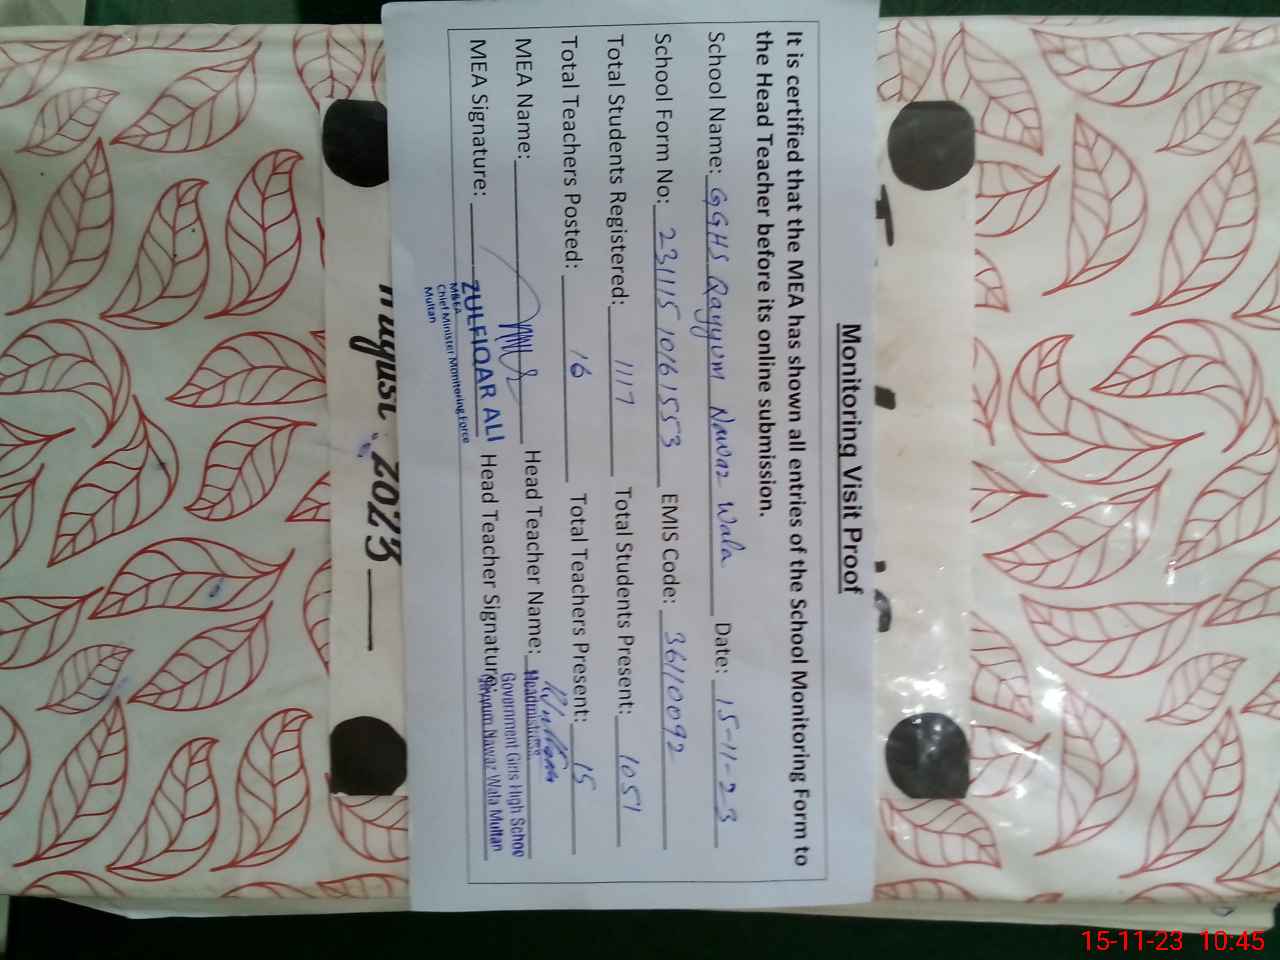 Monitoring Visit Proof
It is certified that the MEA has shown all entries of the School Monitoring Form to
the Head Teacher before its online submission.
School Name: GGHS Qayyum Nawaz Wala Date: 15-11-23
School Form No: 231115 1016 1553 EMIS Code: 36110092
Total Students Registered: 1117 Total Students Present: 1051
Total Teachers Posted: 16 Total Teachers Present: 15
MEA Name: Head Teacher Name:
MEA Signature: Head Teacher Signature:
ZULFIQAR ALI
M&EA
Chief Minister Monitoring Force
Multan
Headmistress
Government Girls High School
Qayyum Nawaz Wala Multan
August 2023
15-11-23 10:45